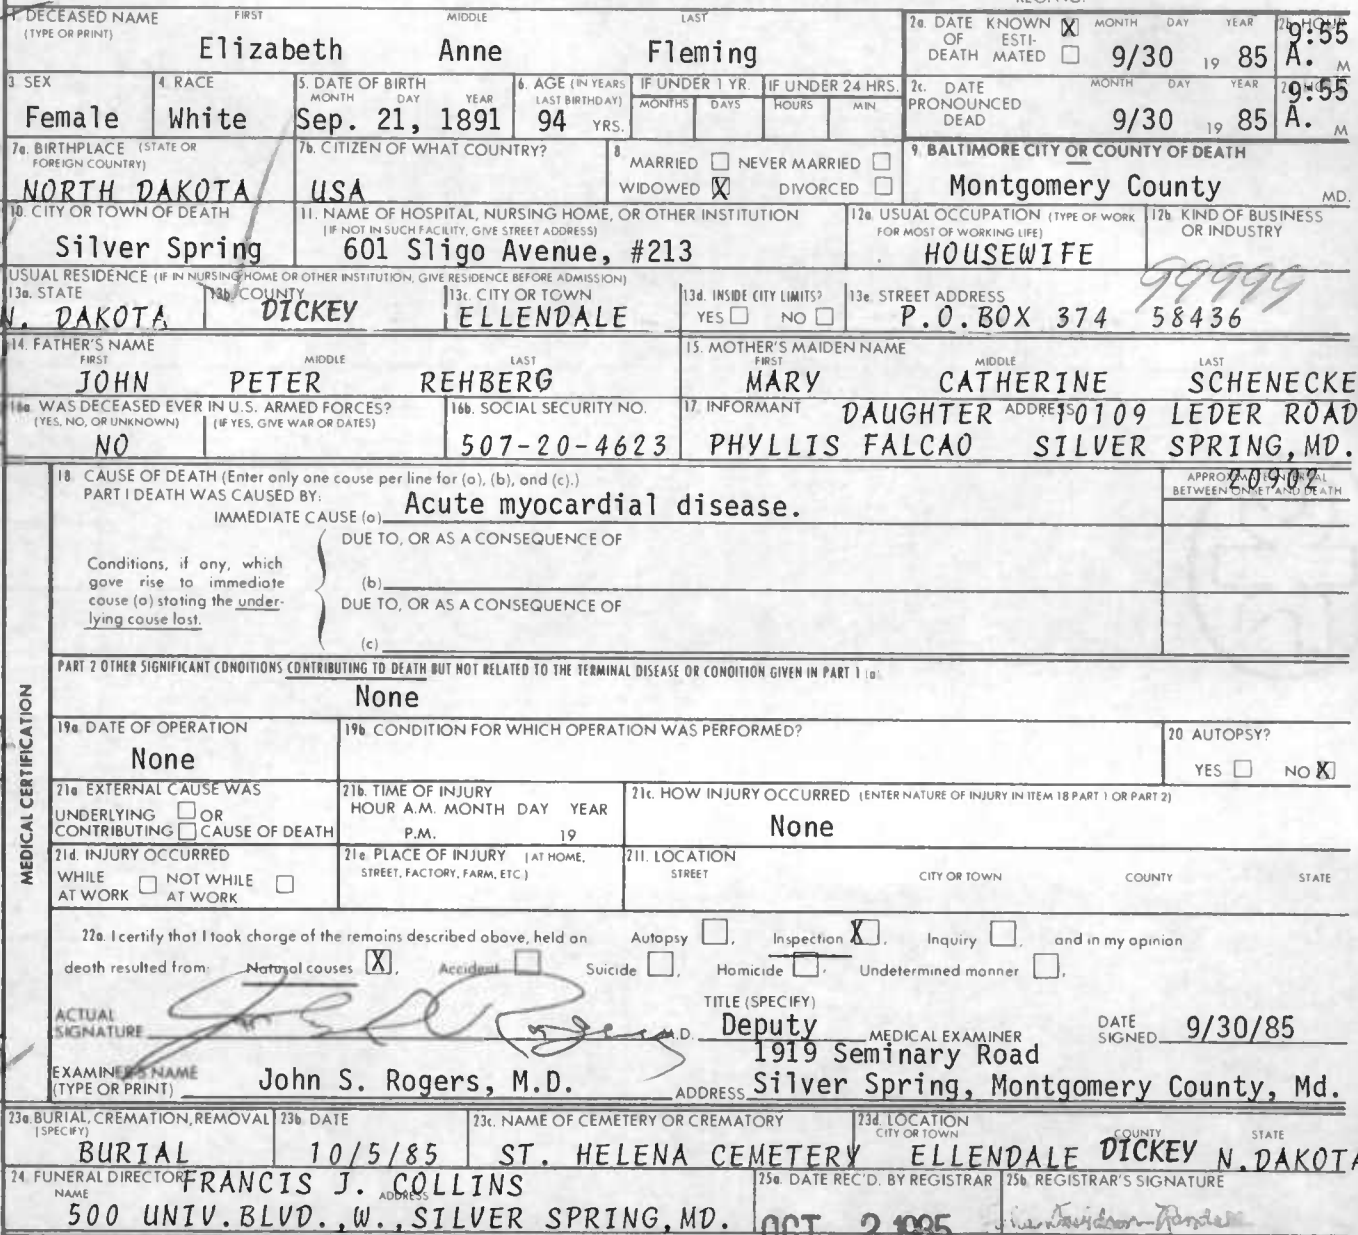 1 DECEASED NAME FIRST MIDDLE LAST
(TYPE OR PRINT)
Elizabeth Anne Fleming
2a. DATE KNOWN X MONTH DAY YEAR
OF ESTI-
DEATH MATED 9/30 19 85
2b. HOUR
9:55
A. M
3 SEX
Female
4 RACE
White
5. DATE OF BIRTH
MONTH DAY YEAR
Sep. 21, 1891
6. AGE (IN YEARS
LAST BIRTHDAY)
94 YRS.
IF UNDER 1 YR.
MONTHS DAYS
IF UNDER 24 HRS.
HOURS MIN
2c. DATE MONTH DAY YEAR
PRONOUNCED
DEAD 9/30 19 85
9:55
A. M
7a. BIRTHPLACE (STATE OR
FOREIGN COUNTRY)
NORTH DAKOTA
7b. CITIZEN OF WHAT COUNTRY?
USA
8
MARRIED NEVER MARRIED
WIDOWED X DIVORCED
9. BALTIMORE CITY OR COUNTY OF DEATH
Montgomery County MD.
10. CITY OR TOWN OF DEATH
Silver Spring
11. NAME OF HOSPITAL, NURSING HOME, OR OTHER INSTITUTION
(IF NOT IN SUCH FACILITY, GIVE STREET ADDRESS)
601 Sligo Avenue, #213
12a USUAL OCCUPATION (TYPE OF WORK
FOR MOST OF WORKING LIFE)
HOUSEWIFE
12b. KIND OF BUSINESS
OR INDUSTRY
99999
USUAL RESIDENCE (IF IN NURSING HOME OR OTHER INSTITUTION, GIVE RESIDENCE BEFORE ADMISSION)
13a. STATE
N. DAKOTA
13b. COUNTY
DICKEY
13c. CITY OR TOWN
ELLENDALE
13d. INSIDE CITY LIMITS?
YES NO
13e. STREET ADDRESS
P.O.BOX 374 58436
14. FATHER'S NAME
FIRST MIDDLE LAST
JOHN PETER REHBERG
15. MOTHER'S MAIDEN NAME
FIRST MIDDLE LAST
MARY CATHERINE SCHENECKE
16a WAS DECEASED EVER IN U.S. ARMED FORCES?
(YES, NO, OR UNKNOWN) (IF YES, GIVE WAR OR DATES)
NO
16b. SOCIAL SECURITY NO.
507-20-4623
17. INFORMANT DAUGHTER ADDRESS 10109 LEDER ROAD
PHYLLIS FALCAO SILVER SPRING,MD.
20902
18 CAUSE OF DEATH (Enter only one cause per line for (a), (b), and (c).)
PART I DEATH WAS CAUSED BY:
IMMEDIATE CAUSE (a) Acute myocardial disease.
APPROXIMATE INTERVAL
BETWEEN ONSET AND DEATH
DUE TO, OR AS A CONSEQUENCE OF
Conditions, if any, which
gave rise to immediate
cause (a) stating the under-
lying cause last.
(b)
DUE TO, OR AS A CONSEQUENCE OF
(c)
PART 2 OTHER SIGNIFICANT CONDITIONS CONTRIBUTING TO DEATH BUT NOT RELATED TO THE TERMINAL DISEASE OR CONDITION GIVEN IN PART 1 (a)
None
MEDICAL CERTIFICATION
19a DATE OF OPERATION
None
19b CONDITION FOR WHICH OPERATION WAS PERFORMED?
20 AUTOPSY?
YES NO X
21a EXTERNAL CAUSE WAS
UNDERLYING OR
CONTRIBUTING CAUSE OF DEATH
21b. TIME OF INJURY
HOUR A.M. MONTH DAY YEAR
P.M. 19
21c. HOW INJURY OCCURRED (ENTER NATURE OF INJURY IN ITEM 18 PART 1 OR PART 2)
None
21d. INJURY OCCURRED
WHILE NOT WHILE
AT WORK AT WORK
21e PLACE OF INJURY (AT HOME,
STREET, FACTORY, FARM, ETC.)
21f. LOCATION
STREET CITY OR TOWN COUNTY STATE
22a. I certify that I took charge of the remains described above, held an Autopsy , Inspection X , Inquiry , and in my opinion
death resulted from: Natural causes X , Accident Suicide , Homicide , Undetermined manner ,
ACTUAL
SIGNATURE John S Rogers M.D.
TITLE (SPECIFY)
Deputy MEDICAL EXAMINER
DATE
SIGNED 9/30/85
EXAMINER'S NAME
(TYPE OR PRINT) John S. Rogers, M.D.
1919 Seminary Road
ADDRESS Silver Spring, Montgomery County, Md.
23a. BURIAL, CREMATION, REMOVAL
(SPECIFY)
BURIAL
23b DATE
10/5/85
23c. NAME OF CEMETERY OR CREMATORY
ST. HELENA CEMETERY
23d. LOCATION
CITY OR TOWN COUNTY STATE
ELLENDALE DICKEY N.DAKOTA
24 FUNERAL DIRECTOR FRANCIS J. COLLINS
NAME ADDRESS
500 UNIV.BLVD.,W.,SILVER SPRING,MD.
25a. DATE REC'D. BY REGISTRAR
OCT 2 1985
25b REGISTRAR'S SIGNATURE